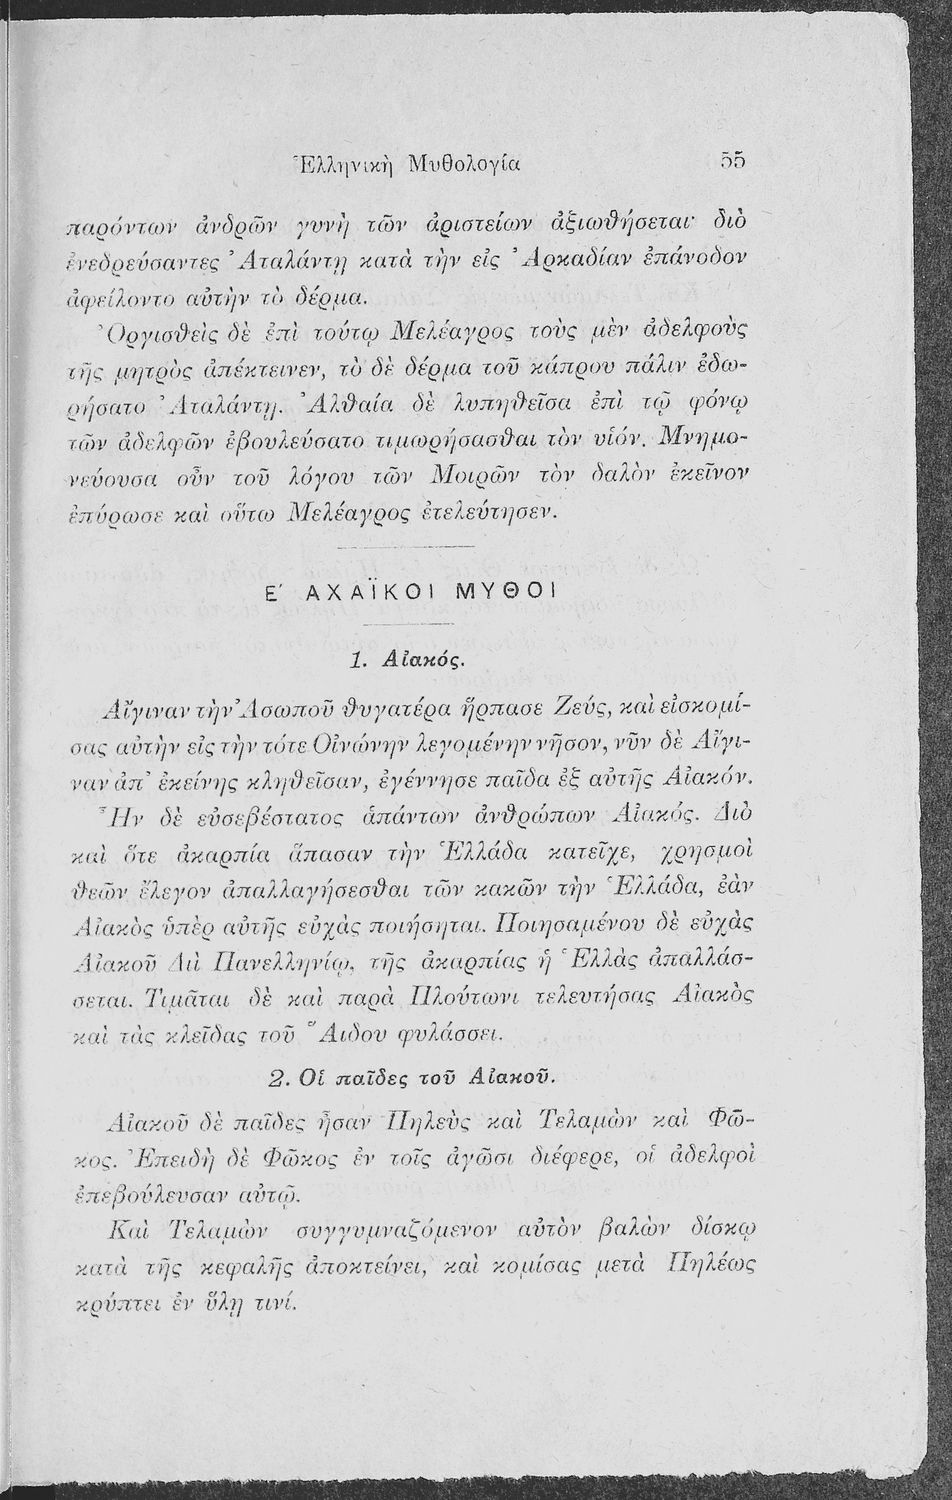 Ἑλληνικὴ Μυθολογία 55
παρόντων ἀνδρῶν γυνὴ τῶν ἀριστείων ἀξιωθήσεται· διὸ
ἐνεδρεύσαντες Ἀταλάντῃ κατὰ τὴν εἰς Ἀρκαδίαν ἐπάνοδον
ἀφείλοντο αὐτὴν τὸ δέρμα.
Ὀργισθεὶς δὲ ἐπὶ τούτῳ Μελέαγρος τοὺς μὲν ἀδελφοὺς
τῆς μητρὸς ἀπέκτεινεν, τὸ δὲ δέρμα τοῦ κάπρου πάλιν ἐδω-
ρήσατο Ἀταλάντῃ. Ἀλθαία δὲ λυπηθεῖσα ἐπὶ τῷ φόνῳ
τῶν ἀδελφῶν ἐβουλεύσατο τιμωρήσασθαι τὸν υἱόν. Μνημο-
νεύουσα οὖν τοῦ λόγου τῶν Μοιρῶν τὸν δαλὸν ἐκεῖνον
ἐπύρωσε καὶ οὕτω Μελέαγρος ἐτελεύτησεν.
Ε΄ ΑΧΑΪΚΟΙ ΜΥΘΟΙ
1. Αἰακός.
Αἴγιναν τὴν Ἀσωποῦ θυγατέρα ἥρπασε Ζεύς, καὶ εἰσκομί-
σας αὐτὴν εἰς τὴν τότε Οἰνώνην λεγομένην νῆσον, νῦν δὲ Αἴγι-
ναν ἀπ' ἐκείνης κληθεῖσαν, ἐγέννησε παῖδα ἐξ αὐτῆς Αἰακόν.
Ἦν δὲ εὐσεβέστατος ἁπάντων ἀνθρώπων Αἰακός. Διὸ
καὶ ὅτε ἀκαρπία ἅπασαν τὴν Ἑλλάδα κατεῖχε, χρησμοὶ
θεῶν ἔλεγον ἀπαλλαγήσεσθαι τῶν κακῶν τὴν Ἑλλάδα, ἐὰν
Αἰακὸς ὑπὲρ αὐτῆς εὐχὰς ποιήσηται. Ποιησαμένου δὲ εὐχὰς
Αἰακοῦ Διὶ Πανελληνίῳ, τῆς ἀκαρπίας ἡ Ἑλλὰς ἀπαλλάσ-
σεται. Τιμᾶται δὲ καὶ παρὰ Πλούτωνι τελευτήσας Αἰακὸς
καὶ τὰς κλεῖδας τοῦ Ἅιδου φυλάσσει.
2. Οἱ παῖδες τοῦ Αἰακοῦ.
Αἰακοῦ δὲ παῖδες ἦσαν Πηλεὺς καὶ Τελαμὼν καὶ Φῶ-
κος. Ἐπειδὴ δὲ Φῶκος ἐν τοῖς ἀγῶσι διέφερε, οἱ ἀδελφοὶ
ἐπεβούλευσαν αὐτῷ.
Καὶ Τελαμὼν συγγυμναζόμενον αὐτὸν βαλὼν δίσκῳ
κατὰ τῆς κεφαλῆς ἀποκτείνει, καὶ κομίσας μετὰ Πηλέως
κρύπτει ἐν ὕλῃ τινί.